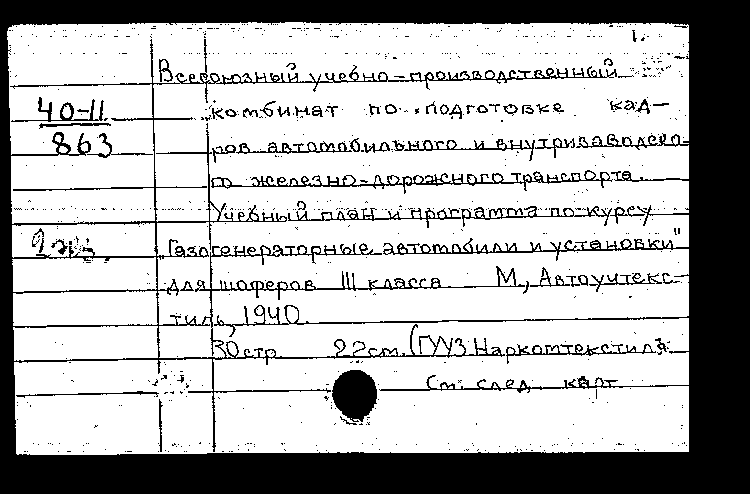 1.
Всесоюзный учебно-производственный
40-11
863
комбинат по подготовке кад-
ров автомобильного и внутризаводско-
го железно-дорожного транспорта.
Учебный план и программа по курсу
2 экз.
"Газогенераторные автомобили и установки"
для шоферов III класса М., Автоучтекс-
тиль, 1940.
30 стр. 22 см. (ГУУЗ Наркомтекстиля
См. след. карт.